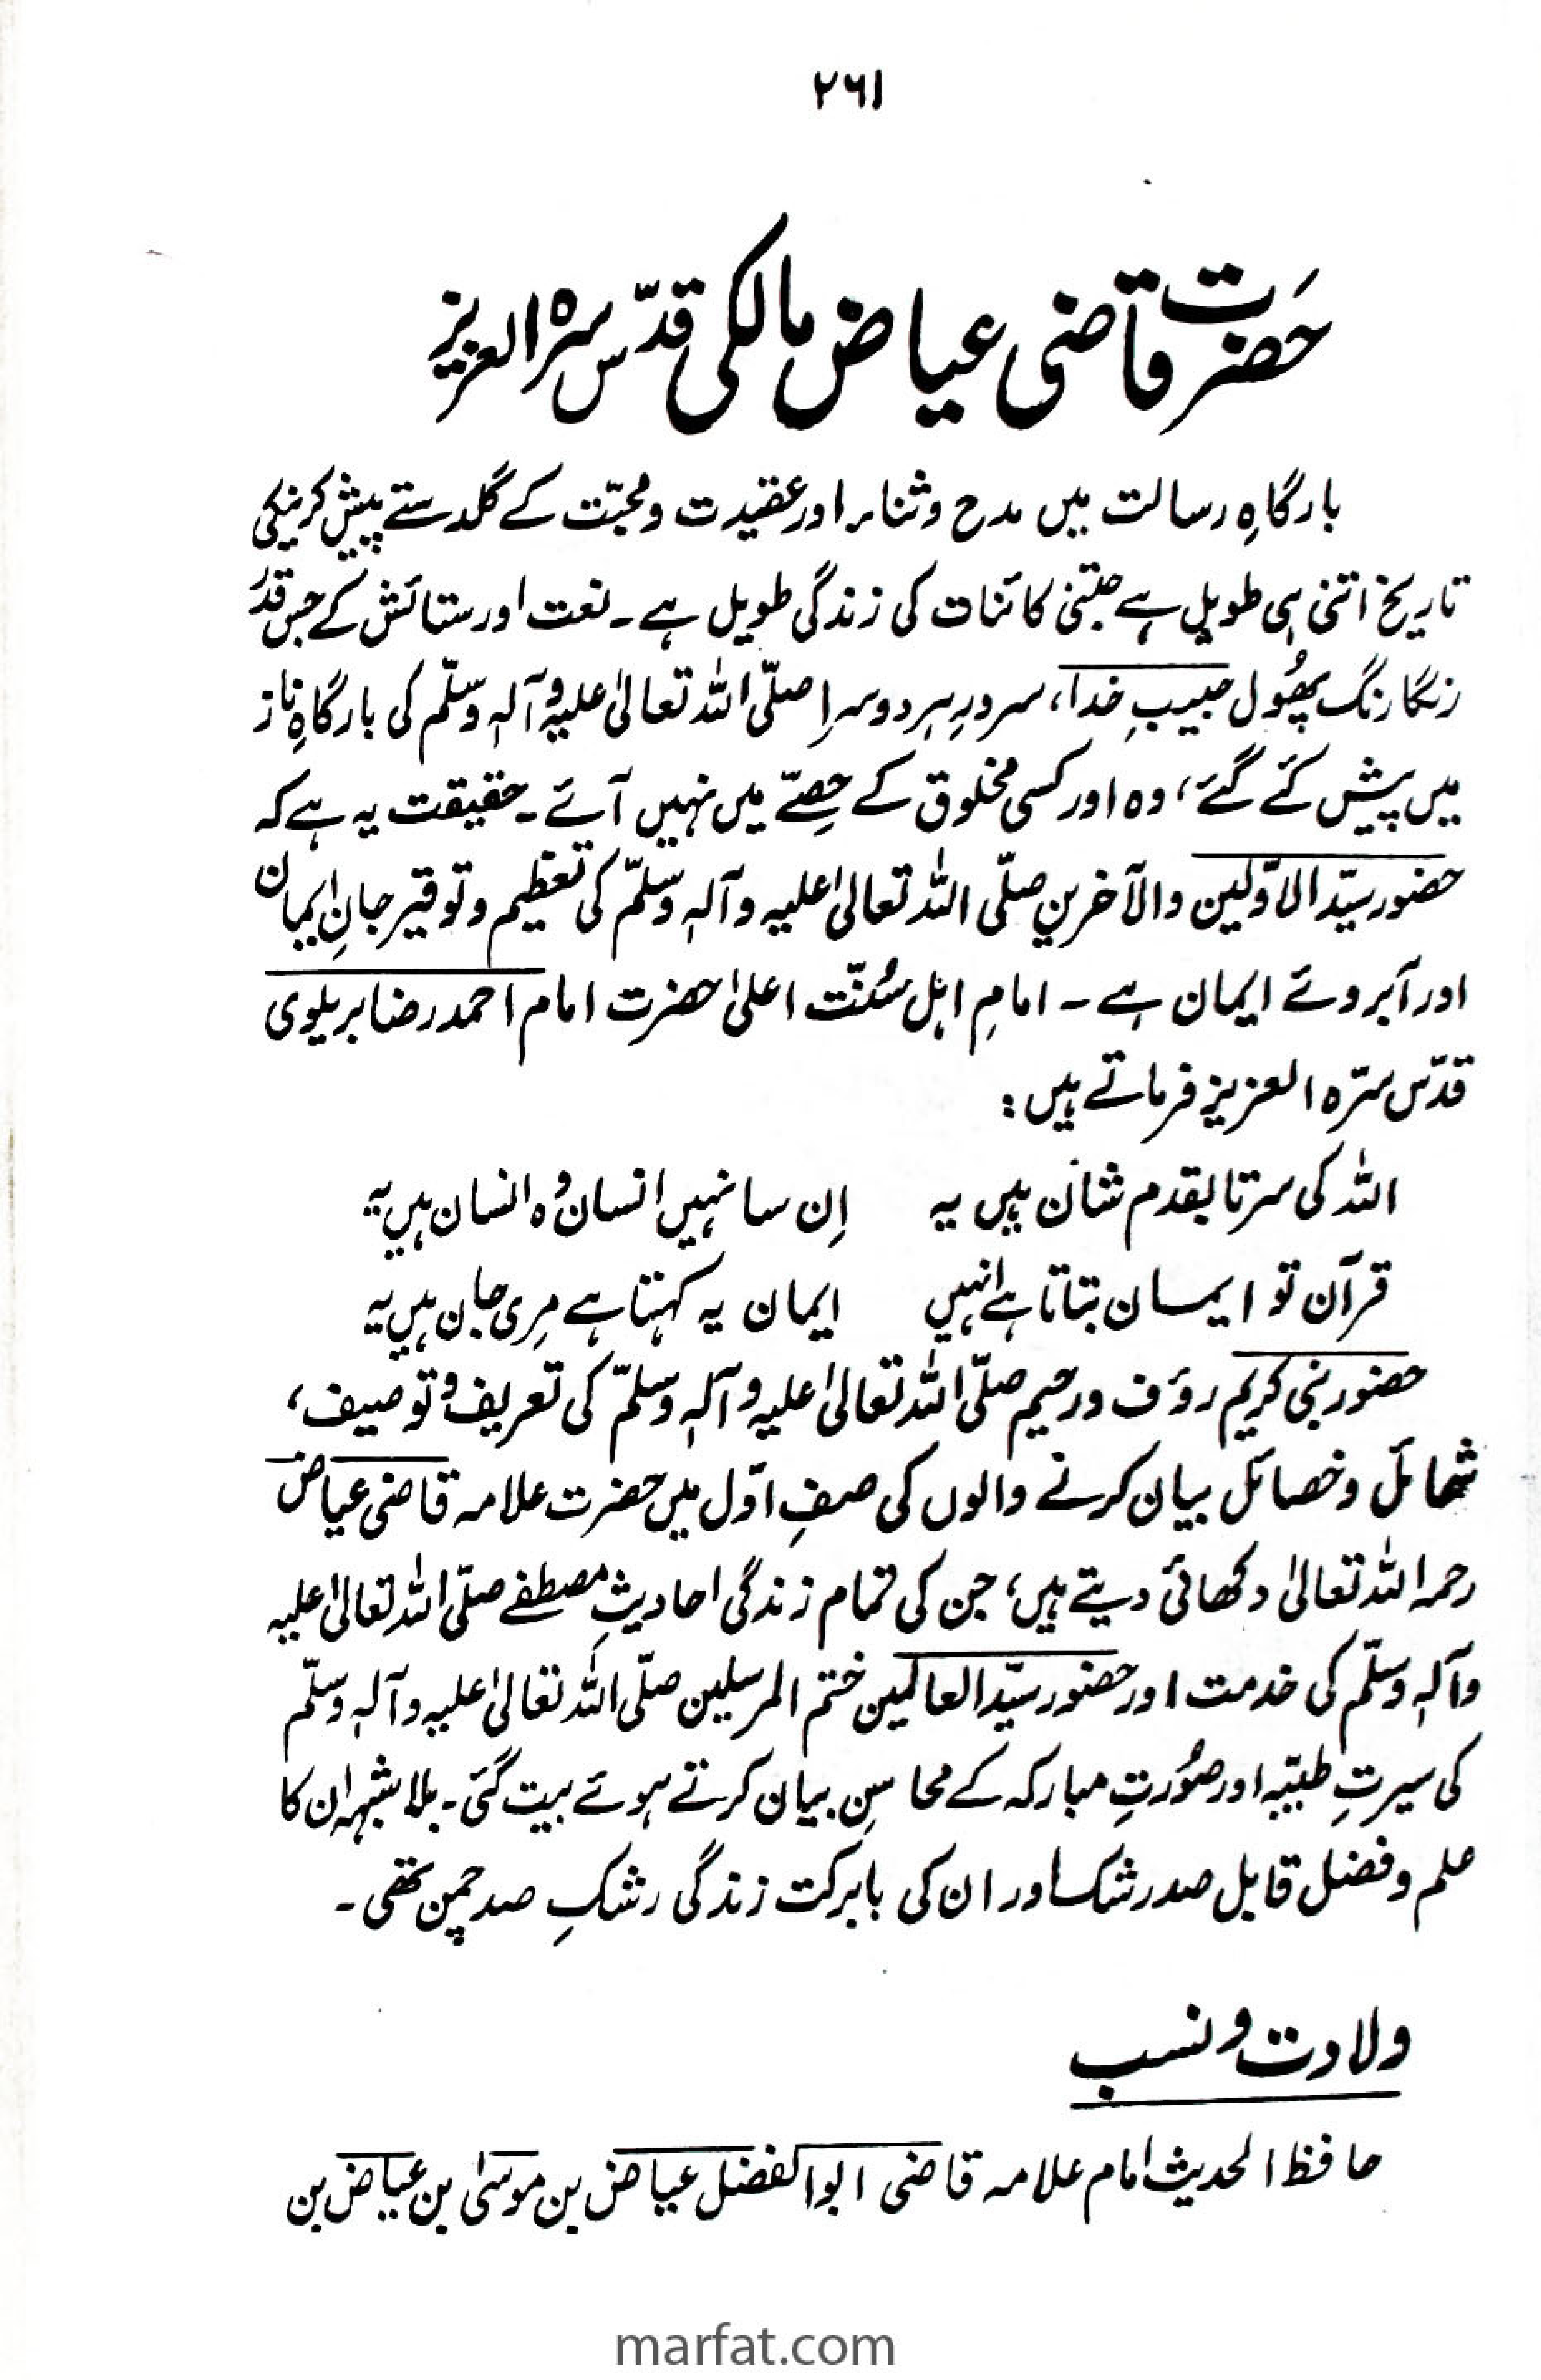 ۲۶۱
حضرت قاضی عیاض مالکی قدّس سرہ العزیز
بارگاہِ رسالت میں مدح و ثناء اور عقیدت و محبّت کے گلدستے پیش کرنیکی
تاریخ اتنی ہی طویل ہے جتنی کائنات کی زندگی طویل ہے۔ نعت اور ستائش کے جس قدر
رنگا رنگ پھُول حبیبِ خدا، سرورِ ہر دوسرا صلّی اللہ تعالیٰ علیہ وآلہٖ وسلّم کی بارگاہِ ناز
میں پیش کئے گئے، وہ اور کسی مخلوق کے حِصّے میں نہیں آئے۔ حقیقت یہ ہے کہ
حضور سیّد الاوّلین والآخرین صلّی اللہ تعالیٰ علیہ وآلہٖ وسلّم کی تعظیم و توقیر جانِ ایمان
اور آبروئے ایمان ہے۔ امامِ اہل سُنّت اعلیٰ حضرت امام احمد رضا بریلوی
قدّس سّرہ العزیز فرماتے ہیں:
اللہ کی سرتا بقدم شان ہیں یہ اِن سا نہیں انسان وُہ انسان ہیں یہ
قرآن تو ایمان بتاتا ہے انہیں ایمان یہ کہتا ہے مِری جان ہیں یہ
حضور نبی کریم رؤف و رحیم صلّی اللہ تعالیٰ علیہ وآلہٖ وسلّم کی تعریف و توصیف،
شمائل و خصائل بیان کرنے والوں کی صفِ اوّل میں حضرت علامہ قاضی عیاض
رحمہ اللہ تعالیٰ دکھائی دیتے ہیں، جن کی تمام زندگی احادیثِ مصطفےٰ صلّی اللہ تعالیٰ علیہ
وآلہٖ وسلّم کی خدمت اور حضور سیّد العالمین ختم المرسلین صلّی اللہ تعالیٰ علیہ وآلہٖ وسلّم
کی سیرتِ طیّبہ اور صُورتِ مبارکہ کے محاسِن بیان کرتے ہوئے بیت گئی۔ بلا شبہ ان کا
علم و فضل قابلِ صد رشک اور ان کی بابرکت زندگی رشکِ صد چمن تھی۔
ولادت و نسب
حافظ الحدیث امام علامہ قاضی ابوالفضل عیاض بن موسیٰ بن عیاض بن
marfat.com